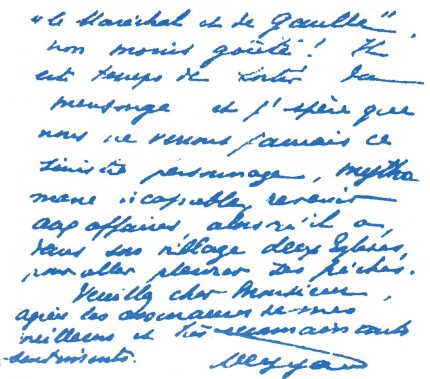 "le Maréchal et de Gaulle",
non moins goûté ! Il
est temps de sortir du
mensonge et j'espère que
nous ne verrons jamais ce
sinistre personnage, mytho
mane incapable, revenir
aux affaires, alors qu'il a,
dans son village deux Eglises,
pour aller pleurer ses péchés.
Veuillez cher Monsieur,
agréer les assurances de mes
meilleurs et très reconnaissants
sentiments.